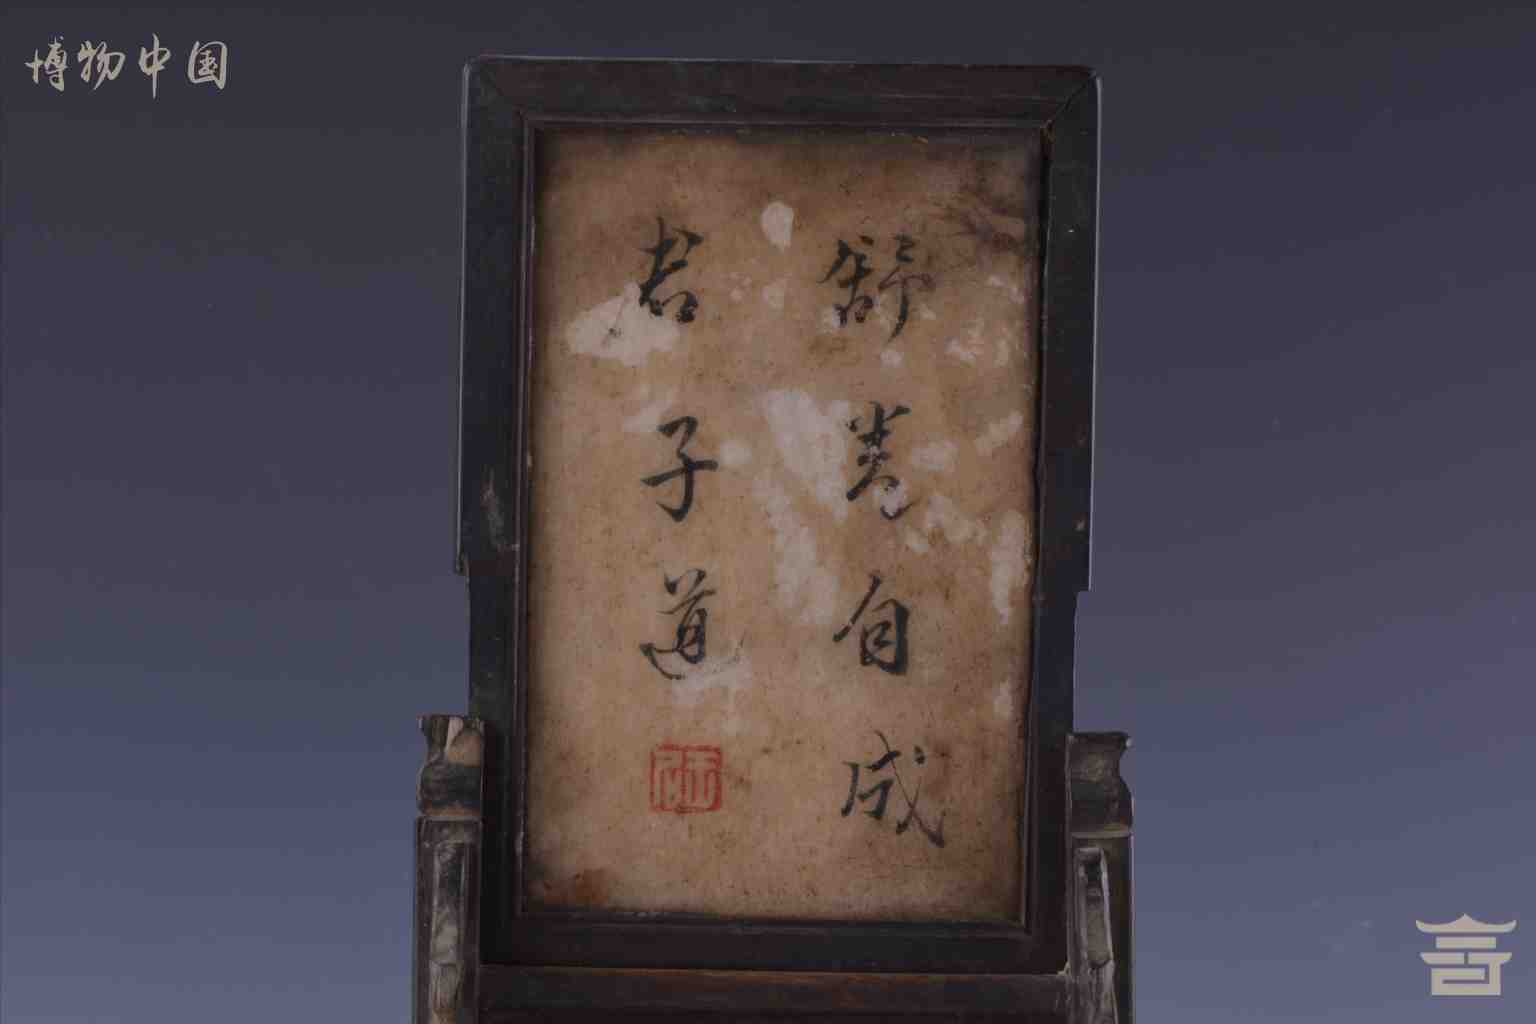 博物中国
舒卷自成
君子道